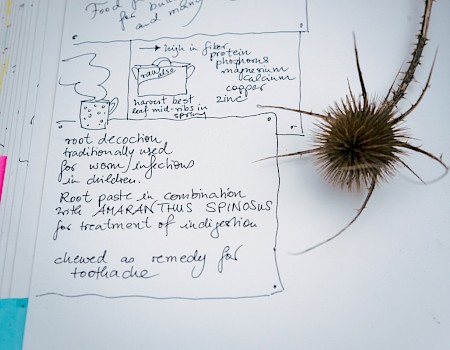 Food f
for bu
and many
→ high in fiber
protein
phosphorus
magnesium
calcium
copper
zinc
harvest best
leaf mid-ribs in
spring
root decoction
traditionally used
for worm infections
in children.
Root paste in combination
with AMARANTHUS SPINOSUS
for treatment of indigestion
chewed as remedy for
toothache